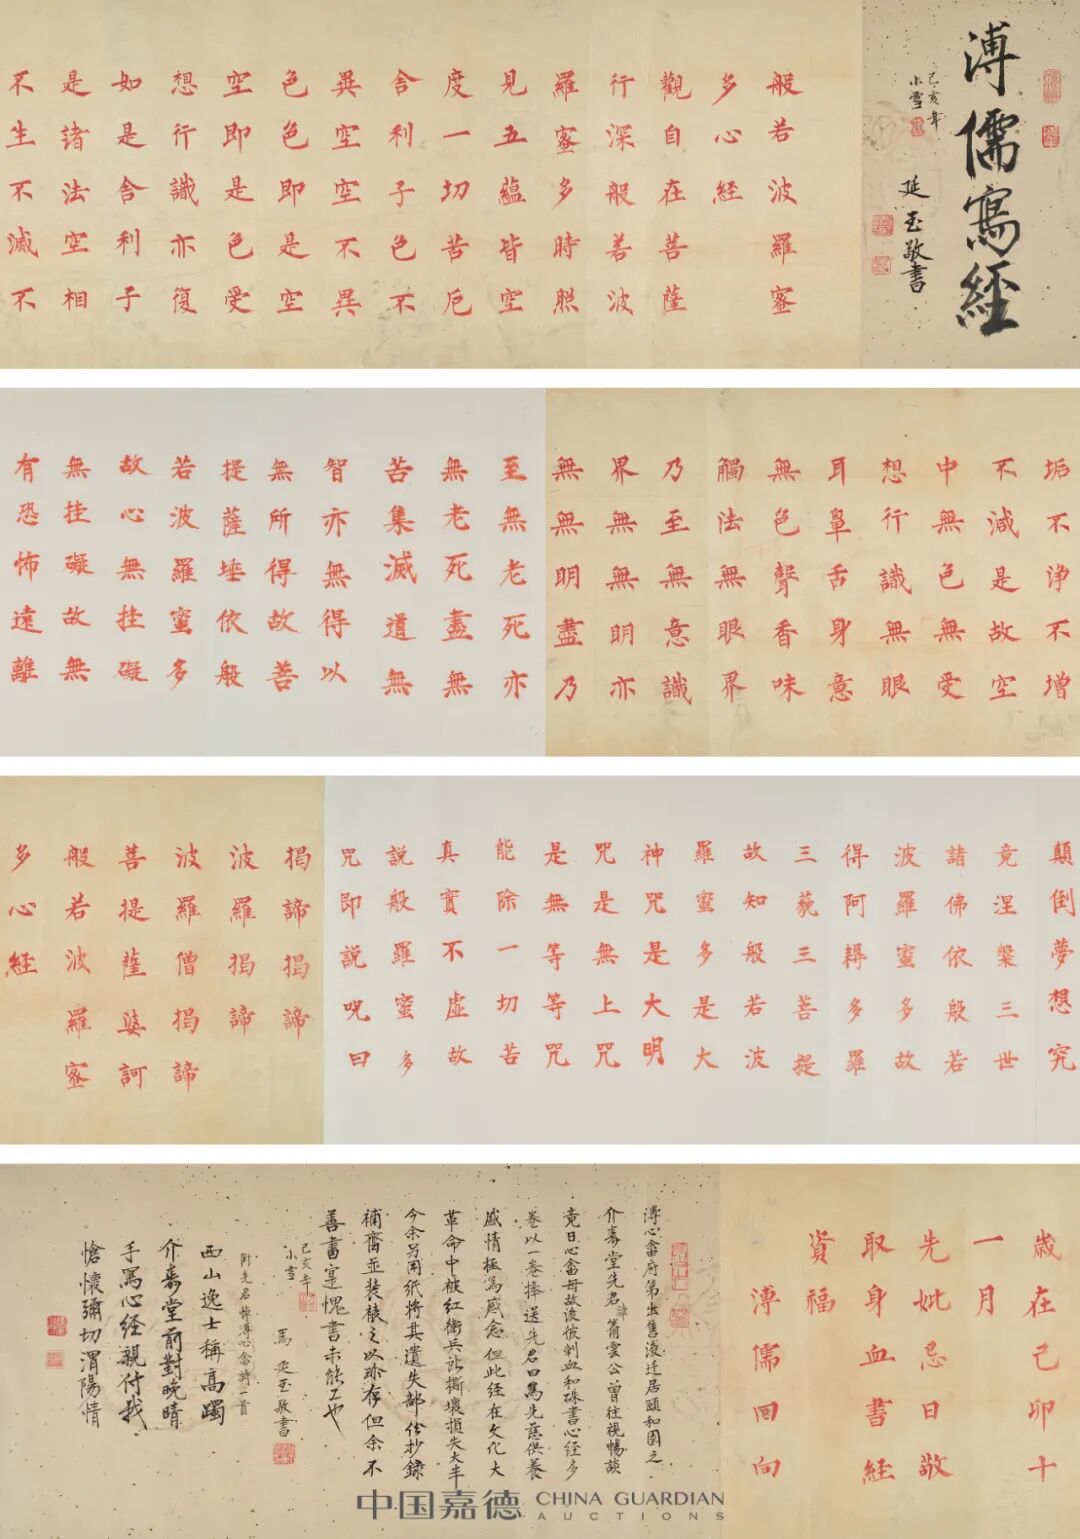 溥儒寫經
己亥年
小雪
延玉敬書
般若波羅蜜
多心經
觀自在菩薩
行深般若波
羅蜜多時照
見五蘊皆空
度一切苦厄
舍利子色不
異空空不異
色色即是空
空即是色受
想行識亦復
如是舍利子
是諸法空相
不生不滅不
垢不淨不增
不減是故空
中無色無受
想行識無眼
耳鼻舌身意
無色聲香味
觸法無眼界
乃至無意識
界無無明亦
無無明盡乃
至無老死亦
無老死盡無
苦集滅道無
智亦無得以
無所得故菩
提薩埵依般
若波羅蜜多
故心無挂礙
無挂礙故無
有恐怖遠離
顛倒夢想究
竟涅槃三世
諸佛依般若
波羅蜜多故
得阿耨多羅
三藐三菩提
故知般若波
羅蜜多是大
神咒是大明
咒是無上咒
是無等等咒
能除一切苦
真實不虛故
說般羅蜜多
咒即説呪曰
揭諦揭諦
波羅揭諦
波羅僧揭諦
菩提薩婆訶
般若波羅蜜
多心經
歲在己卯十
一月
先妣忌日敬
取身血書經
資福
溥儒回向
溥心畬府第出售後遷居頤和園之
介壽堂先君諱箾雲公曾往視暢談
竟日心畬母故後彼刺血和硃書心經多
卷以一卷捧送先君曰為先慈供養
感情極為感念但此經在文化大
革命中被紅衛兵訟撕壞損失大半
今余另用紙將其遺失部份抄錄
補齊並裝裱之以珍存但余不
善書寔愧書未能工也
己亥年
小雪
馬延玉敬書
附先君悼溥心畬詩一首
西山逸士稱高躅
介壽堂前對晚晴
手寫心經親付我
愴懷彌切渭陽情
中国嘉德 CHINA GUARDIAN
AUCTIONS